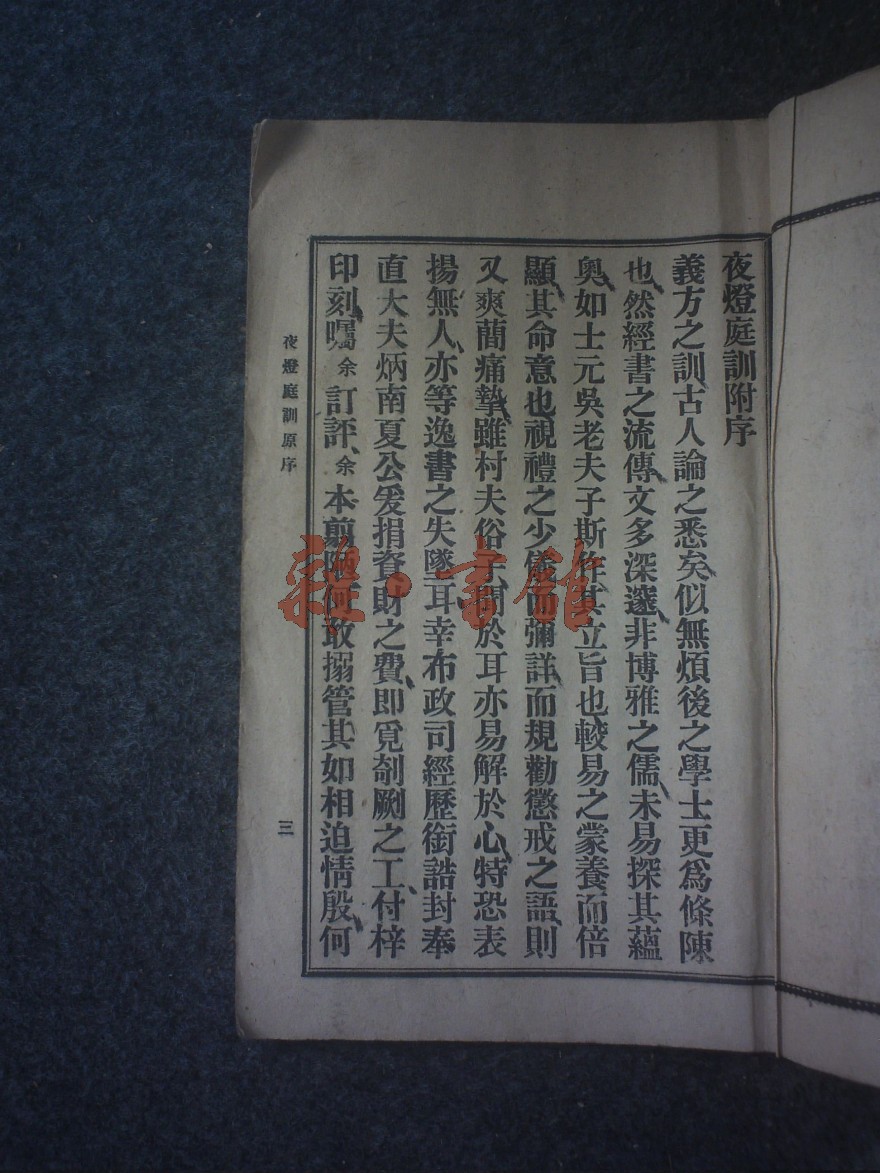 夜燈庭訓附序
義方之訓、古人論之悉矣、似無煩後之學士更爲條陳
也、然經書之流傳、文多深邃、非博雅之儒、未易探其蘊
奧、如士元吳老夫子斯作、其立旨也、較易之蒙養而倍
顯、其命意也、視禮之少儀而彌詳、而規勸懲戒之語、則
又爽藺痛摯、雖村夫俗夫、聞於耳亦易解於心、特恐表
揚無人、亦等逸書之失墜耳幸布政司經歷銜誥封奉
直大夫炳南夏公爰捐資財之費、即覓剞劂之工、付梓
印刻、囑余訂評、余本翦陋、何敢搦管、其如相迫情殷、何
夜燈庭訓原序
三
雜·書館